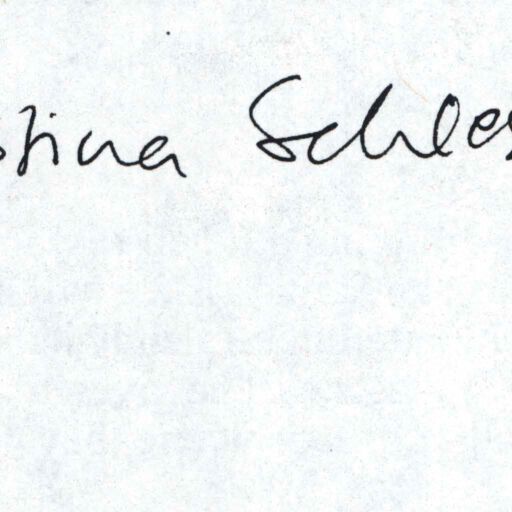 stina Schles